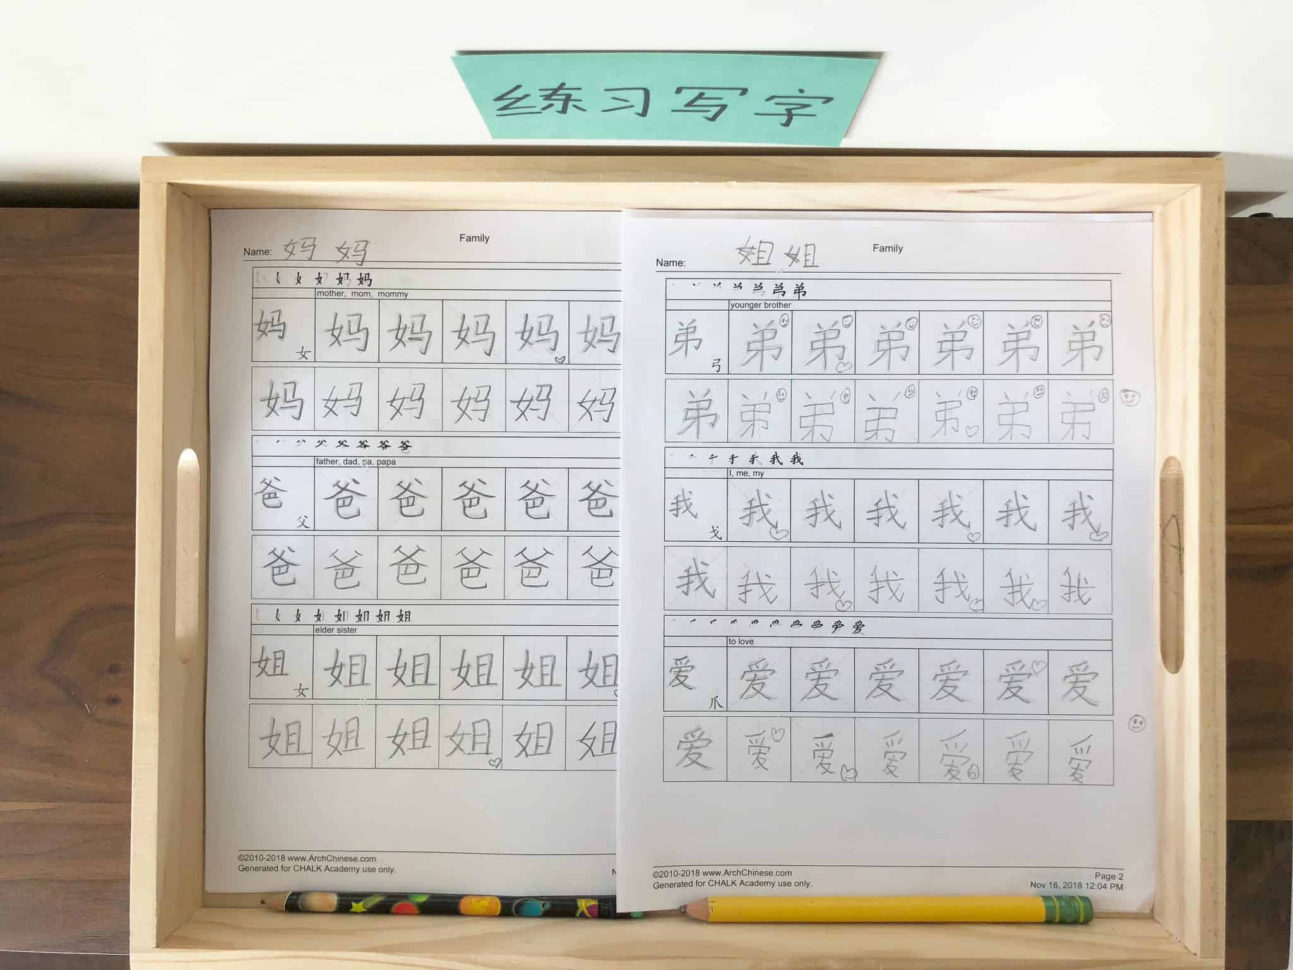 练习写字
Family
Name: 妈 妈
mother, mom, mommy
妈 女 妈 妈 妈 妈 妈
妈 妈 妈 妈 妈 妈
father, dad, pa, papa
爸 父 爸 爸 爸 爸 爸
爸 爸 爸 爸 爸 爸
elder sister
姐 女 姐 姐 姐 姐 姐
姐 姐 姐 姐 姐 姐
©2010-2018 www.ArchChinese.com
Generated for CHALK Academy use only.
Family
Name: 姐 姐
younger brother
弟 弓 弟 弟 弟 弟 弟 弟
弟 弟 弟 弟 弟 弟 弟
I, me, my
我 戈 我 我 我 我 我 我
我 我 我 我 我 我 我
to love
爱 爪 爱 爱 爱 爱 爱 爱
爱 爱 爱 爱 爱 爱 爱
©2010-2018 www.ArchChinese.com
Generated for CHALK Academy use only.
Page 2
Nov 16, 2018 12:04 PM